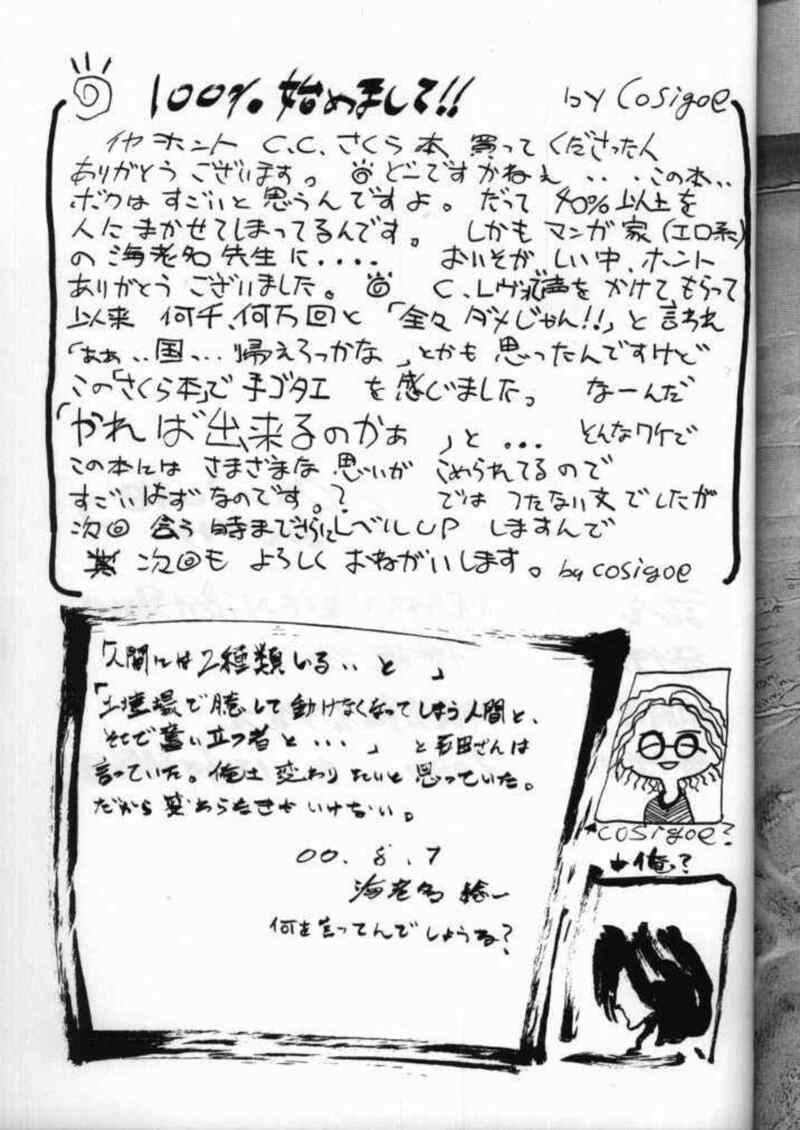 100% 始めまして!! by Cosigoe
イヤ ホント C.C.さくら本 買って くださった人
ありがとう ございます。 どーですかねぇ ・・・この本・・
ボクは すごいと 思うんですよ。 だって 90%以上を
人に まかせてしまってるんです。 しかも マンガ家(エロ系)
の 海老名先生に・・・・ おいそがしい中、ホント
ありがとう ございました。 C.レヴォで声を かけて もらって
以来 何千、何万回と 「全々 ダメじゃん!!」と 言われ
「ぁぁ・・国・・・帰えろっかな」とかも 思ったんですけど
この「さくら本」で 手ゴタエ を感じました。 なーんだ
「やれば出来るのかぁ 」と ・・・ そんなワケで
この本には さまざまな 思いが こめられてるので
すごいはず なのです。? では つたない文でしたが
次回 会う時まで さらにレベルUP しますんで
次回も よろしく おねがいします。 by cosigoe
「人間には2種類いる・・と」
「土壇場で臆して動けなくなってしまう人間と、
そこで奮い立つ者と・・・」 と さんは
言っていた。俺士変わりたいと思っていた。
だから変わらなきゃいけない。
00. 8. 7
海老名
何を言ってんでしょうね?
cosigoe?
俺?